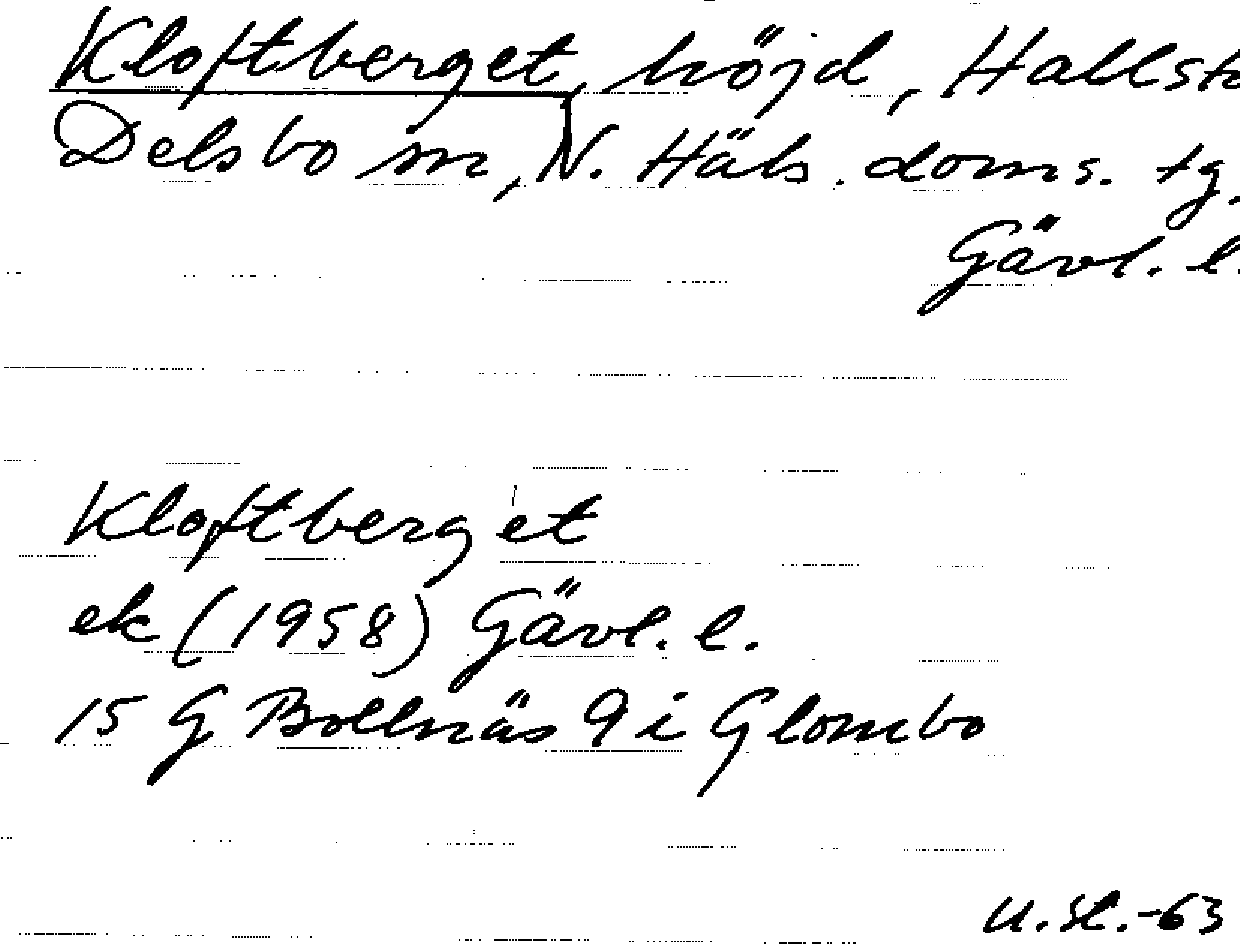 Kloftberget, höjd, Hallsta
Delsbo sn, N. Häls. doms. tg,
Gävl. l.
Kloftberget
ek (1958) Gävl. l.
15 G Bollnäs 9 i Glombo
U. Sl. -63